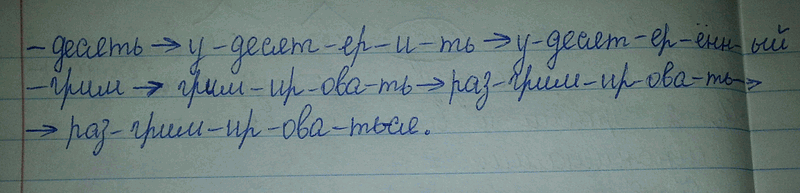 – десять → у-десят-ер-и-ть → у-десят-ер-ённ-ый
– грим → грим-ир-ова-ть → раз-грим-ир-ова-ть →
→ раз-грим-ир-ова-ться.